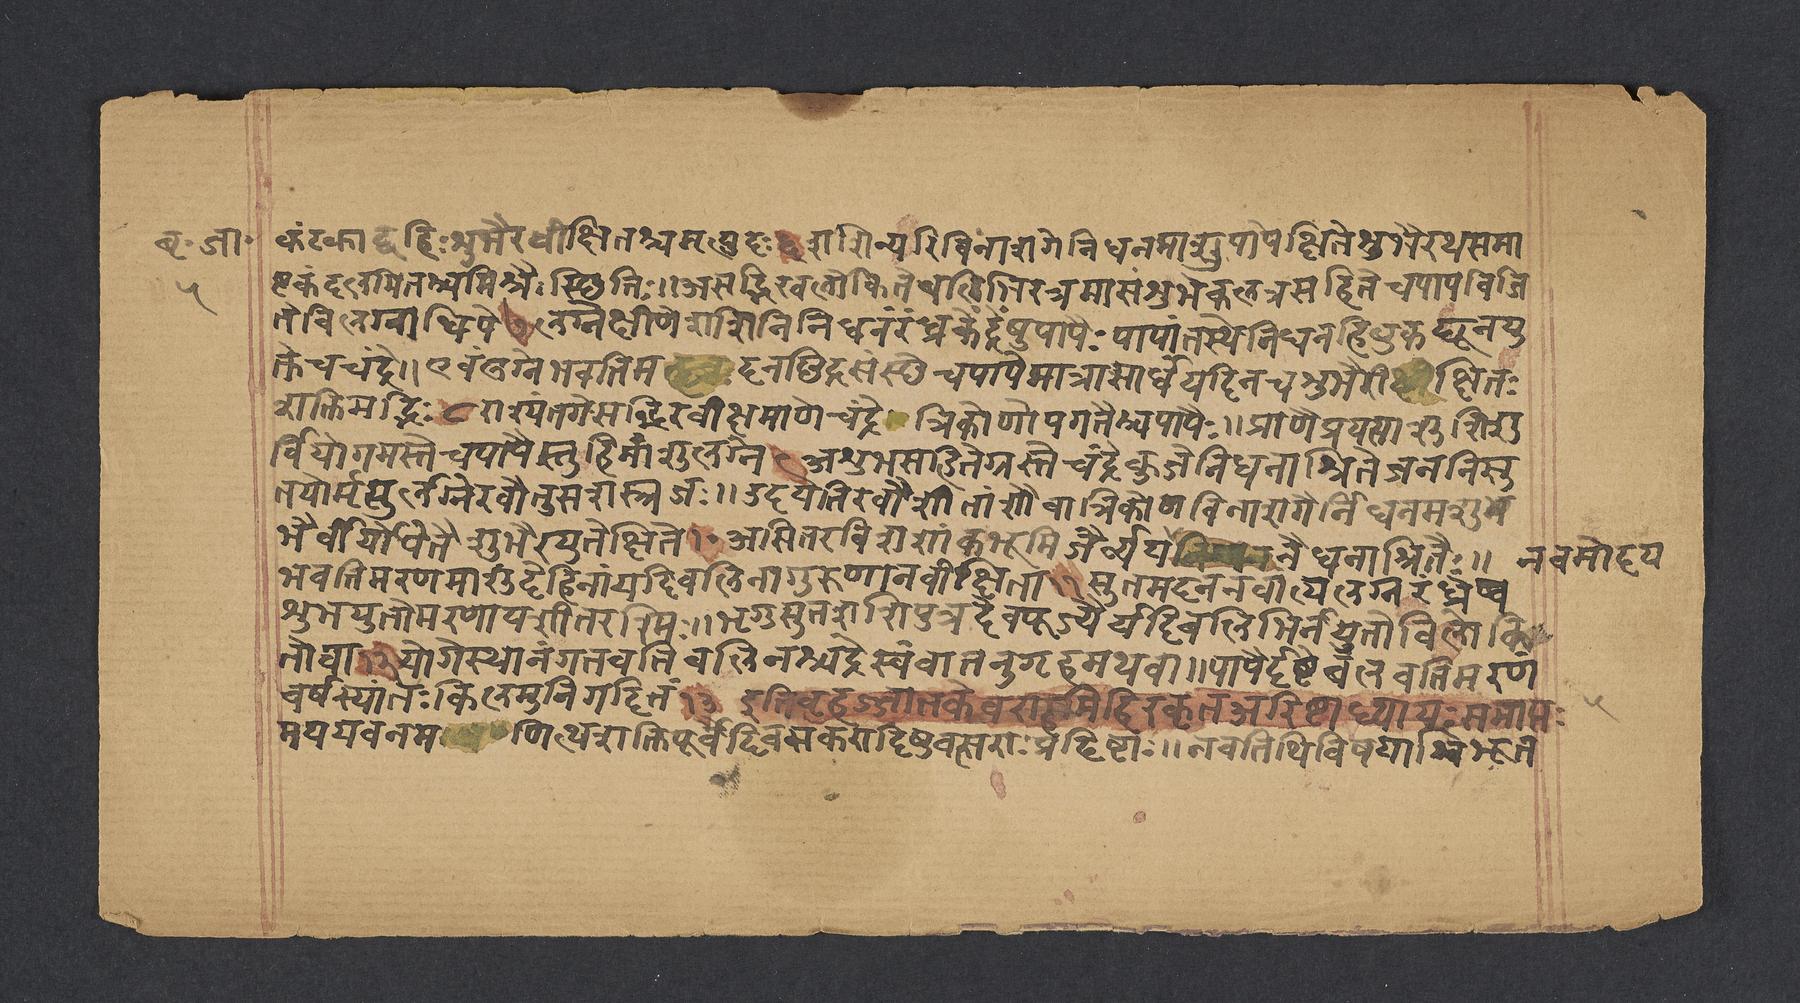 बृ॰जा॰
५
कंटकाद्बहिःशुभैरवीक्षितश्चमृत्युदः
शशिन्यरिविनाशगेनिधनमाशुपापेक्षितेशुभैरथसमा
ष्टकंदलमितश्चमिश्रैःस्थितिः॥असद्भिरवलोकितेबलिभिरत्रमासंशुभेकलत्रसहितेचपापविजि
तेविलग्नाधिपे७लग्नेक्षीणेशशिनिनिधनंरंध्रकेंद्रेषुपापैःपापांतस्थेनिधनहिबुकद्यूनयु
क्तेचचंद्रे॥एवंलग्नेभवतिमदनछिद्रसंस्थैचपापैर्मात्रासार्धंयदिनचशुभैर्वीक्षितः
शक्तिमद्भिः८राश्यंतगेसद्भिरवीक्षमाणेचंद्रेत्रिकोणोपगतैश्चपापैः॥प्राणैप्रयात्याशुशिशु
र्वियोगमस्तेचपापैस्तुहिमांशुलग्ने९अशुभसहितेग्रस्तेचंद्रेकुजेनिधनाश्रितेजननिसु
तयोर्मृत्युर्लग्नेरवौतुसशस्त्रजः॥उदयतिरवौशीतांशौवात्रिकोणविनाशगैर्निधनमशुभै
र्वीर्योपेतैशुभैरयुतेक्षिते१॰असितरविशशांकभूमिजैर्व्ययनैधनाश्रितैः॥
नवमोदय
भवतिमरणमाशुदेहिनांयदिबलिनागुरुणानवीक्षिता११सुतमदननवांत्येलग्नरंध्रेष्व
शुभयुतोमरणायशीतरश्मिः॥भृगुसुतशशिपुत्रदेवपूज्यैर्यदिबलिभिर्नयुतोविलोकि
तोवा१२योगेस्थानंगतवतिबलिनश्चंद्रेस्वंवातनुगृहमथवा॥पापैर्दृष्टेबलवतिमरणं
वर्षस्यांतःकिलमुनिगदितं१३इतिबृहज्जातकेवराहमिहिरकृतअरिष्टाध्यायःसमाप्तः
५
मययवनमणित्थशक्तिपूर्वैर्दिवसकरादिषुवत्सराःप्रदिष्टाः॥नवतिथिविषयाश्विभूत